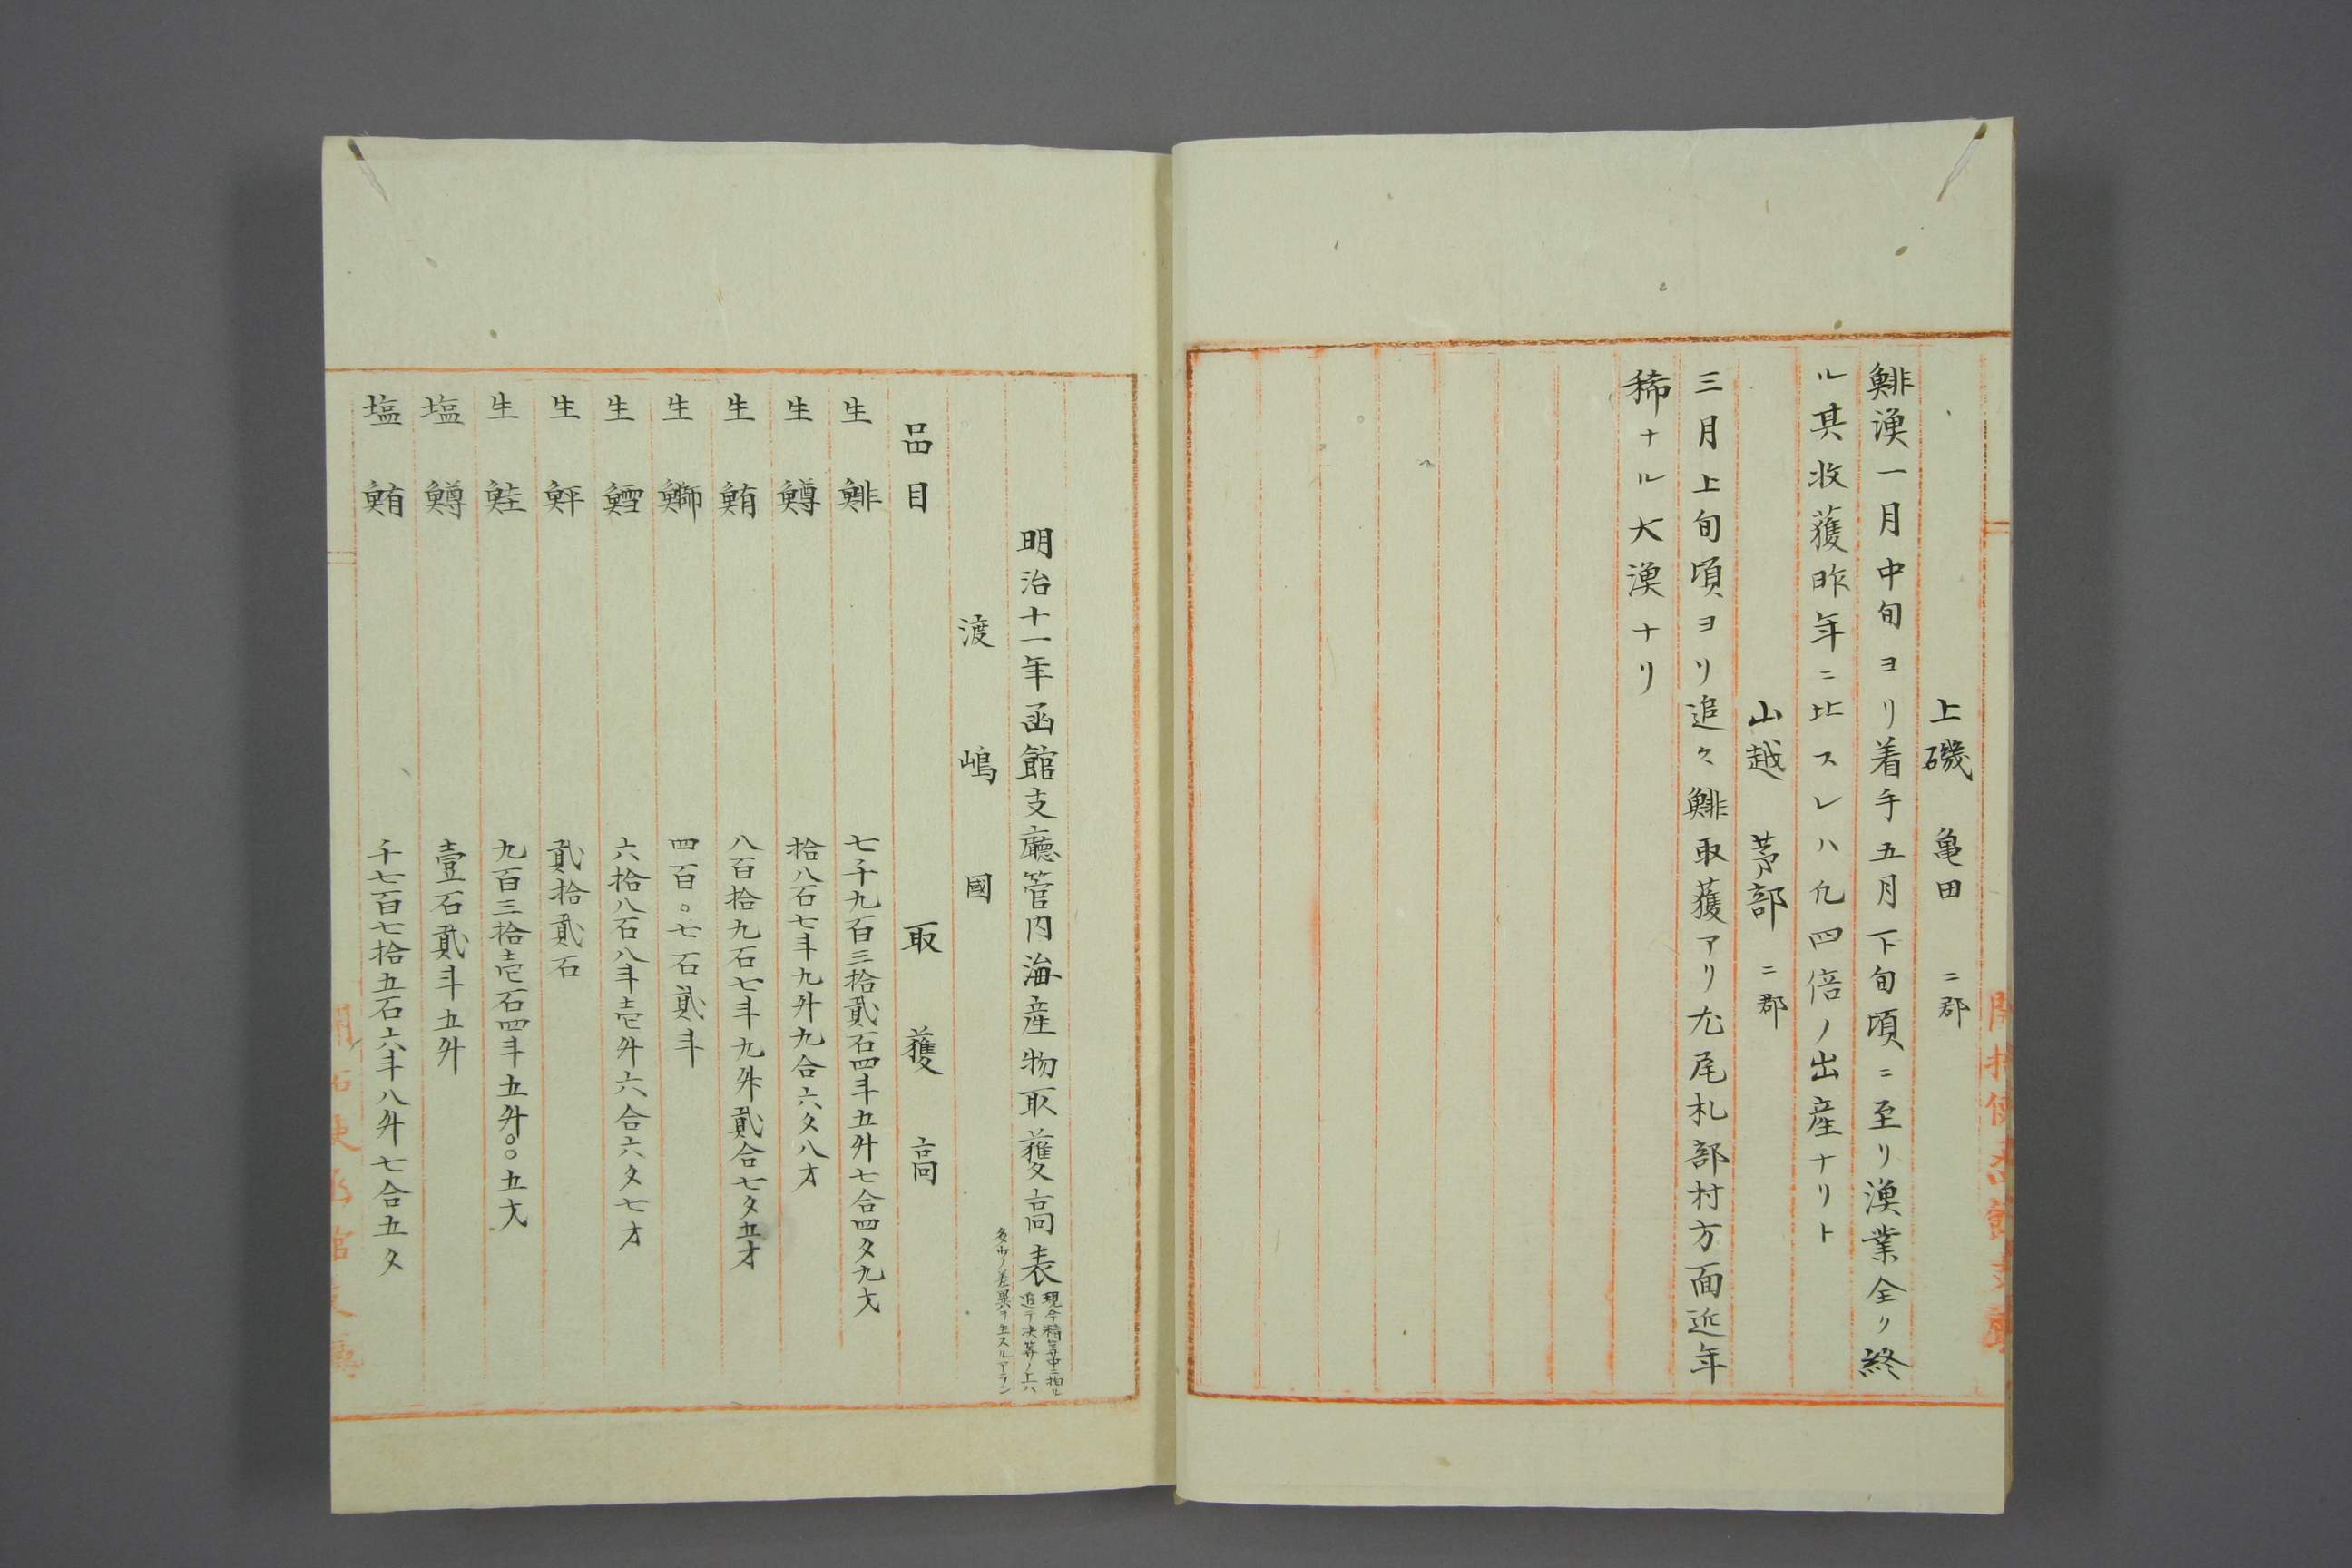 上磯 亀田 二郡
鯡漁一月中旬ヨリ着手五月下旬頃ニ至リ漁業全ク終
ル其收獲昨年ニ比スレハ凡四倍ノ出産ナリト
山越 茅部 二郡
三月上旬頃ヨリ追々鯡取獲アリ尤尾札部村方面近年
稀ナル大漁ナリ
明治十一年函館支廳管内海産物取獲高表
現今精算中ニ拍ル
追テ決算ノ上ハ
多少ノ差異ヲ生スルアラン
渡嶋國
品目 取獲高
生鯡 七千九百三拾貳石四斗五升七合四夕九才
生鱒 拾八石七斗九升九合六夕八才
生鮪 八百拾九石七斗九升貳合七夕五才
生鰤 四百〇七石貳斗
生鱈 六拾八石八斗壱升六合六夕七才
生鮃 貳拾貳石
生鮭 九百三拾壱石四斗五升〇〇五才
塩鱒 壹石貳斗五升
塩鮪 千七百七拾五石六斗八升七合五夕
開拓使函館支廳